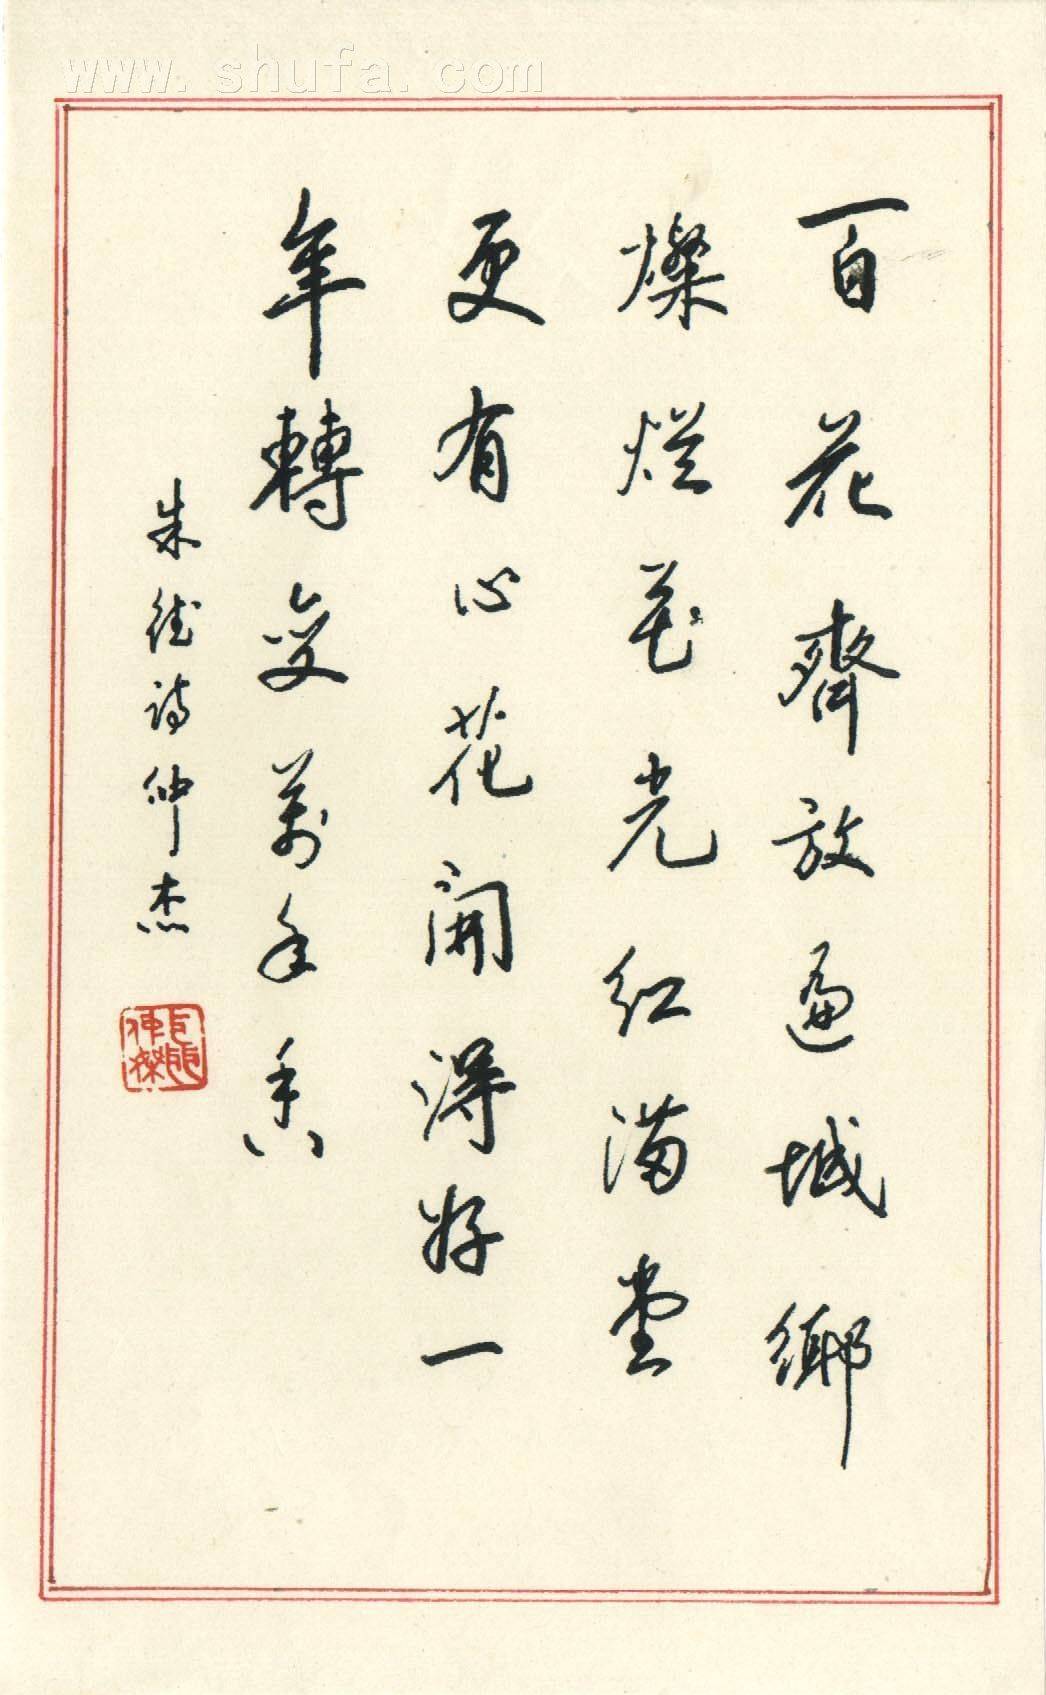 www.shufa.com
百花齊放遍城鄉
燦烂花光红满堂
更有心花開得好一
年轉变萬年香
朱德诗仲杰